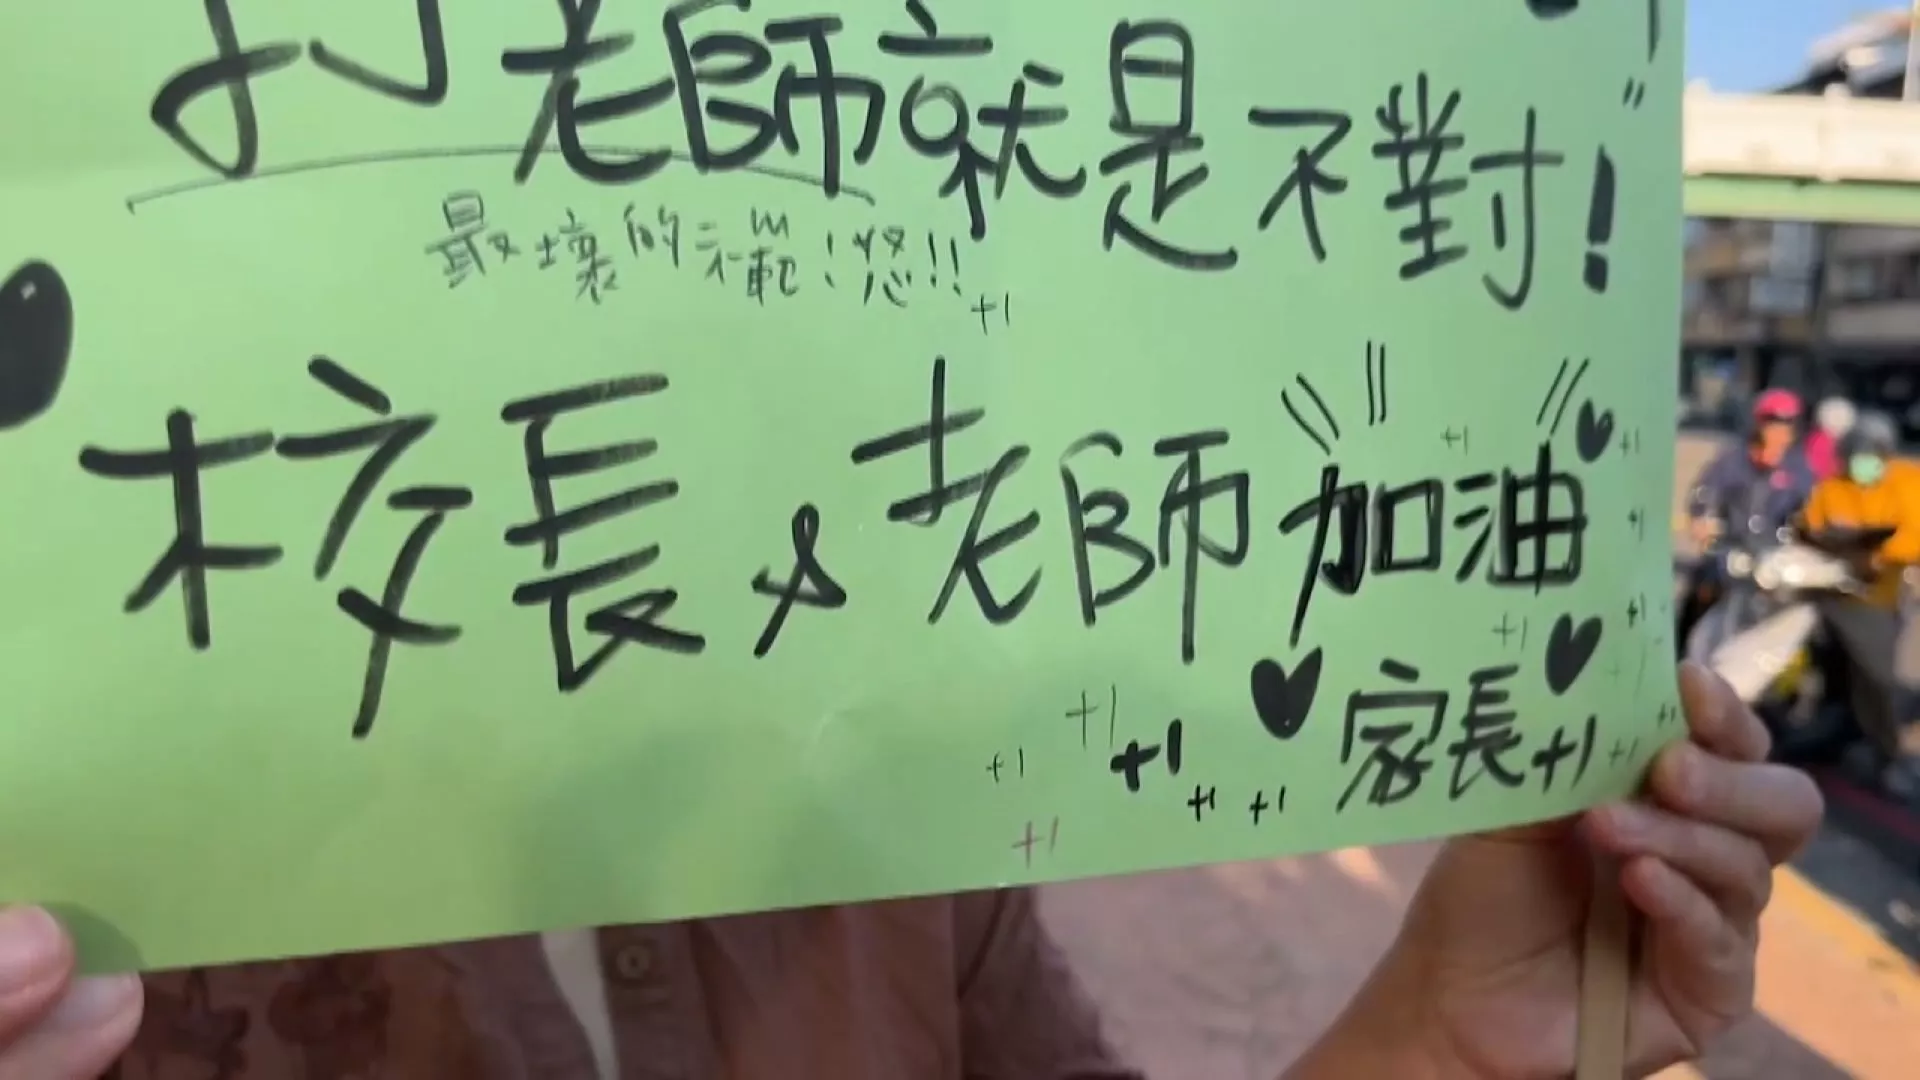 打老師就是不對!
最壞的示範!怒!!
+1
校長&老師加油
+1
+1
+1
+1
+1
家長+1
+1
+1
+1
+1
+1
+1
+1
+1